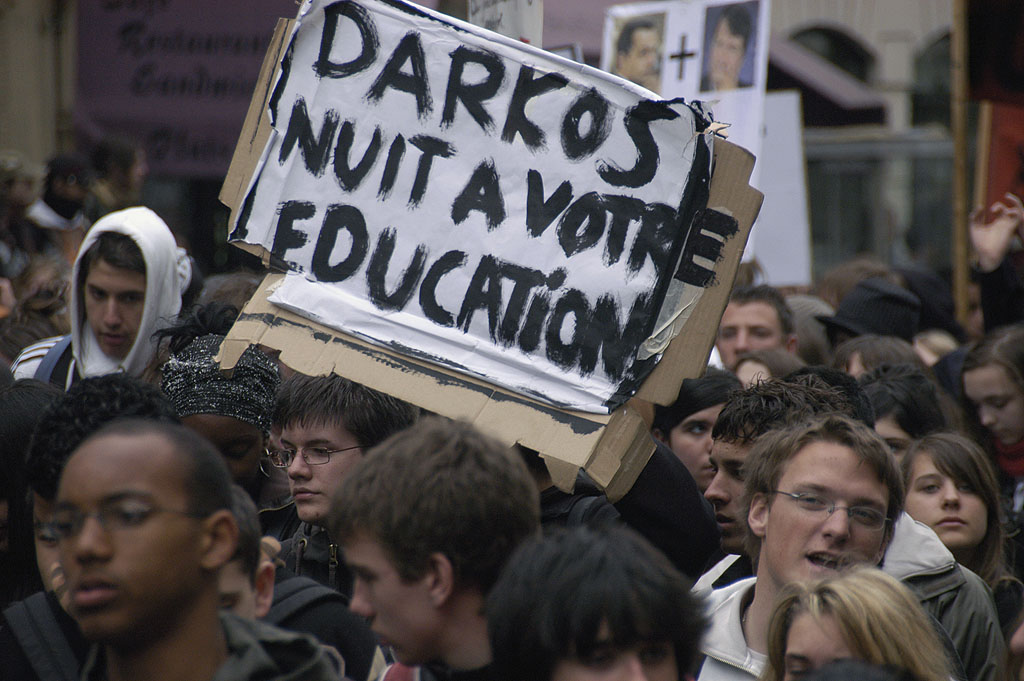 DARKOS
NUIT A VOTRE
EDUCATiON
+
Restaurant